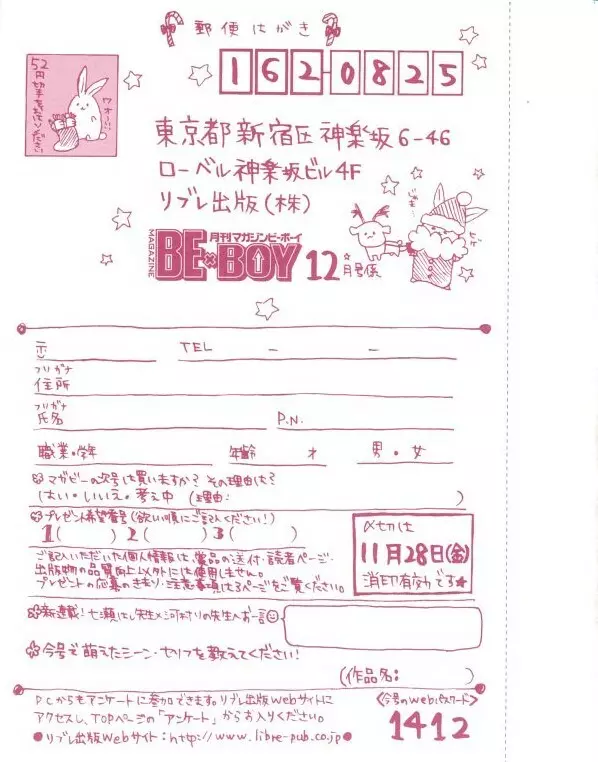 郵便はがき
162-0825
52円切手をおはりください
ワオー!!
東京都新宿区神楽坂6-46
ローベル神楽坂ビル4F
リブレ出版(株)
MAGAZINE
月刊マガジンビーボーイ
BE×BOY 12月号係
〒 TEL - -
フリガナ
住所
フリガナ
氏名 P.N.
職業・学年 年齢 才 男・女
マガビーの次号は買いますか? その理由は?
(はい・いいえ・考え中 (理由: )
プレゼント希望番号(欲しい順にご記入ください!)
1( ) 2( ) 3( )
〆切は
11月28日(金)
消印有効です★
ご記入いただいた個人情報は、賞品の送付・読者ページ・
出版物の品質向上以外には使用しません。
プレゼントの応募のきまり・注意事項は ページをご覧ください。
新連載!七瀬 先生×河村 の先生へお一言
今号で萌えたシーン・セリフを教えてください!
(作品名: )
PCからもアンケートに参加できます。リブレ出版Webサイトに
アクセスし、TOPページの「アンケート」からお入りください。
●リブレ出版Webサイト:http://www.libre-pub.co.jp●
<今号のWebパスワード>
1412